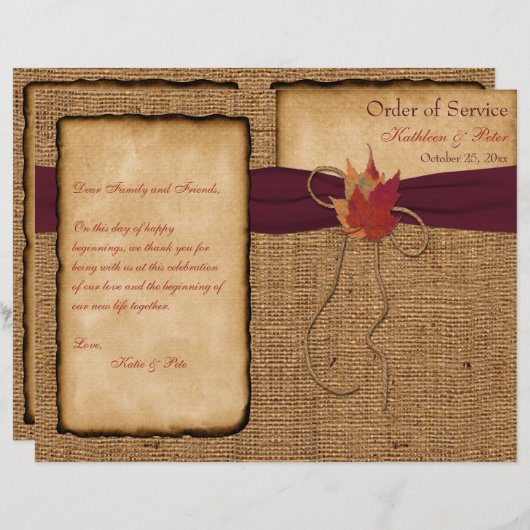 Order of Service
Kathleen & Peter
October 25, 20xx
Dear Family and Friends,
On this day of happy
beginnings, we thank you for
being with us at this celebration
of our love and the beginning of
our new life together.
Love,
Katie & Pete